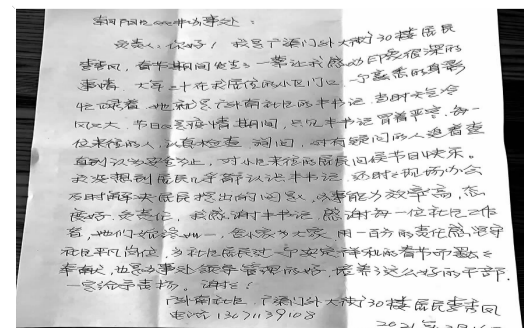 朝阳区     办事处：
负责人：你好！我是广渠门外大街30楼居民
李秀凤，春节期间发生了一事让我感动印象很深的
事情。大年三十在我居住的小区门口，一个熟悉的身影
忙碌着，她就是广外南社区的   书记，当时天气冷
风又大，节日又是疫情期间，只见   书记冒着严寒，每一
位来往的人，认真检查、询问，对有疑问的人追着查
直到认为安全为止，对小区来往的居民问候节日快乐。
我没想到居民几乎都认识   书记，还时时现场办公
及时解决居民提出的问题，办事能力效率高，态
度好，负责任，我感谢   书记，感谢每一位社区工作
者，她们       ，舍小家为大家，用一百分的责任感坚守
社区平凡岗位，为社区居民过一个安定祥和的春节而
奉献，也是办事处领导管理的好，培养这么好的干部，
一定给予表扬。谢谢！
广外南社区：广渠门外大街30楼居民李秀凤
电话：13671139108
2021年2月16